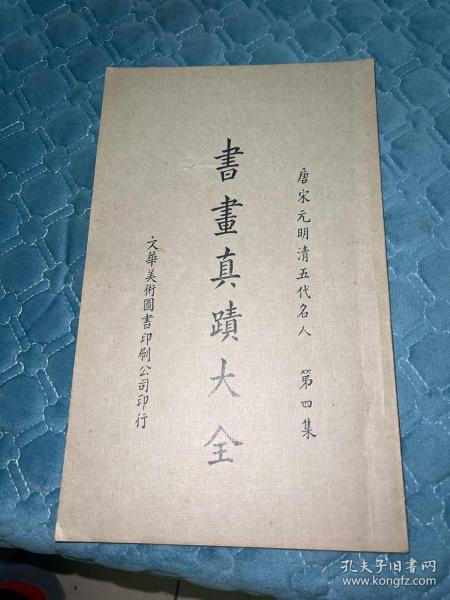 唐宋元明清五代名人 第四集
書畫真蹟大全
文華美術圖書印刷公司印行
孔夫子旧书网
www.kongfz.com